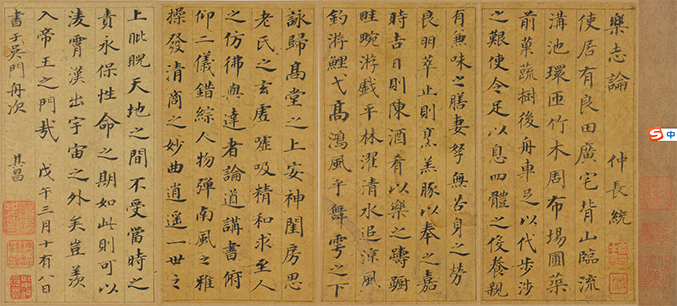 樂志論 仲長統
使居有良田廣宅背山臨流
溝池環匝竹木周布場圃築
前菓蔬樹後舟車足以代步涉
之艱使令足以息四體之役養親
有兼味之膳妻孥無苦身之勞
良朋萃止則烹羔豚以奉之嘉
時吉日則陳酒肴以樂之躊躇
畦畹游戲平林濯清水追涼風
釣游鯉弋高鴻風乎舞雩之下
詠歸高堂之上安神閨房思
老氏之玄虛噓吸精和求至人
之仿彿與達者論道講書俯
仰二儀錯綜人物彈南風之雅
操發清商之妙曲逍遙一世之
上睥睨天地之間不受當時之
責永保性命之期如此則可以
淩霄漢出宇宙之外矣豈羨
入帝王之門哉 戊午三月十有八日
書于吳門舟次 其昌
S 中